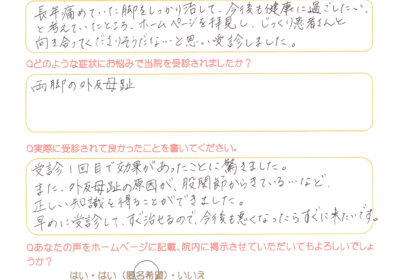 長年痛めていた脚をしっかり治して、今後も健康に過ごしたい、
と考えていたところ、ホームページを拝見し、じっくり患者さんと
向き合ってくださりそうだな…と思い受診しました。
Qどのような症状にお悩みで当院を受診されましたか?
両脚の外反母趾
Q実際に受診されて良かったことを書いてください。
受診1回目で効果があったことに驚きました。
また、外反母趾の原因が、股関節からきている…など、
正しい知識を得ることができました。
早めに受診して、すぐ治せるので、今後も悪くなったらすぐに来たいです。
Qあなたの声をホームページに記載、院内に掲示させていただいてもよろしいでしょ
うか?
はい・はい(匿名希望)・いいえ